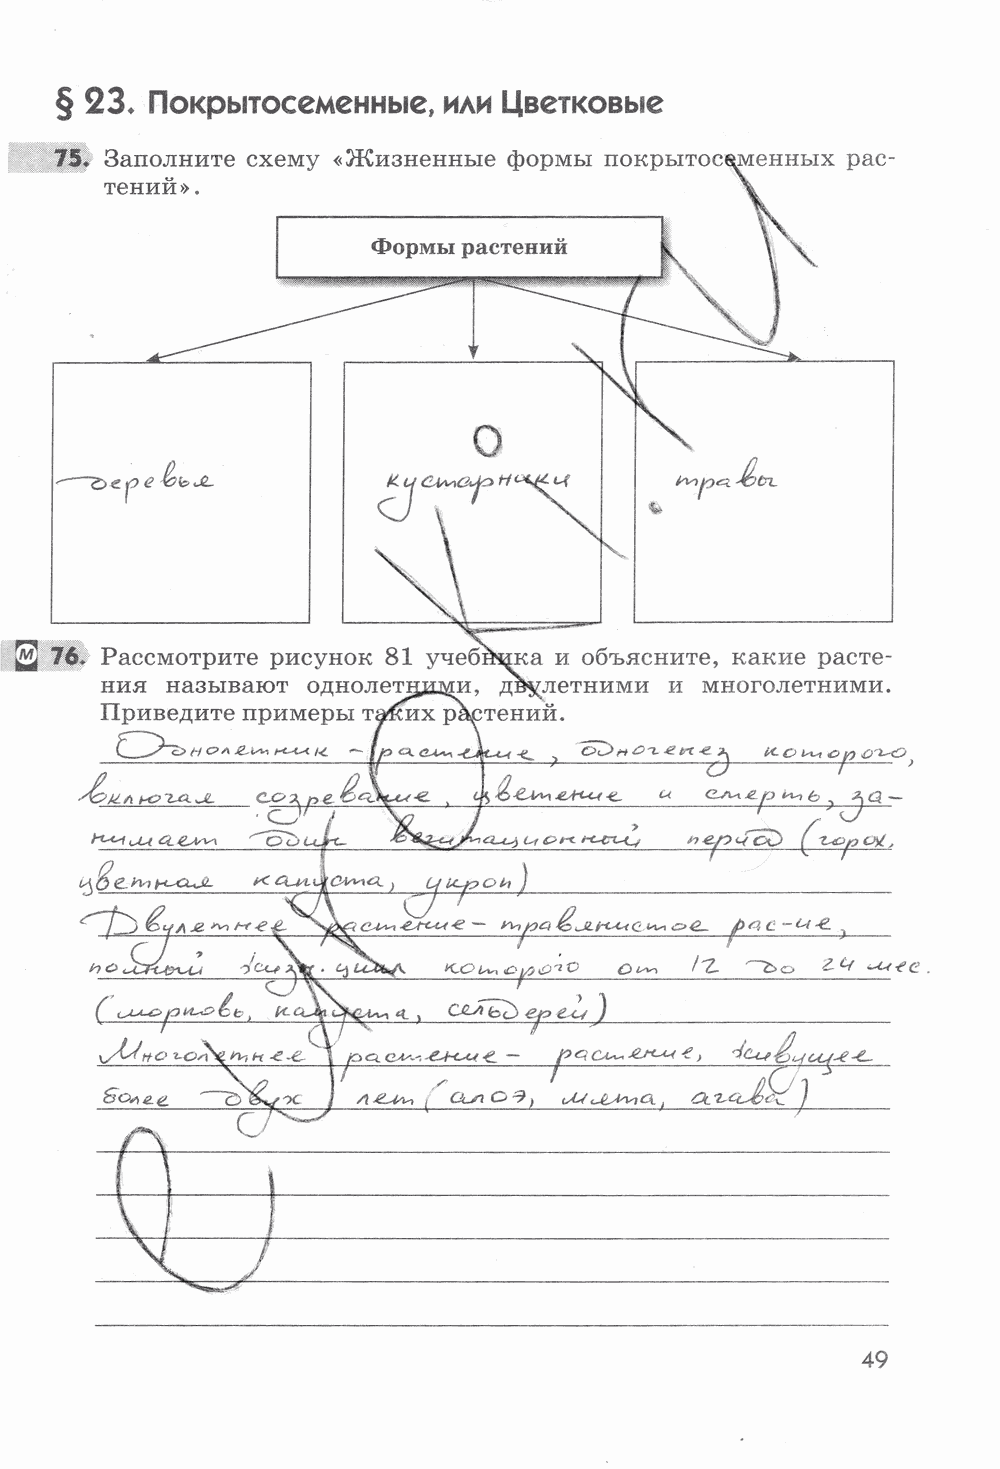 § 23. Покрытосеменные, или Цветковые
75. Заполните схему «Жизненные формы покрытосеменных рас-
тений».
Формы растений
деревья
кустарники
травы
М 76. Рассмотрите рисунок 81 учебника и объясните, какие расте-
ния называют однолетними, двулетними и многолетними.
Приведите примеры таких растений.
Однолетник – растение, одногенез которого,
включая созревание, цветение и смерть, за-
нимает один вегитационный период (горох,
цветная капуста, укроп)
Двулетнее растение – травянистое рас-ие,
полный жизн. цикл которого от 12 до 24 мес.
(морковь, капуста, сельдерей)
Многолетнее растение – растение, живущее
более двух лет (алоэ, мята, агава)
49